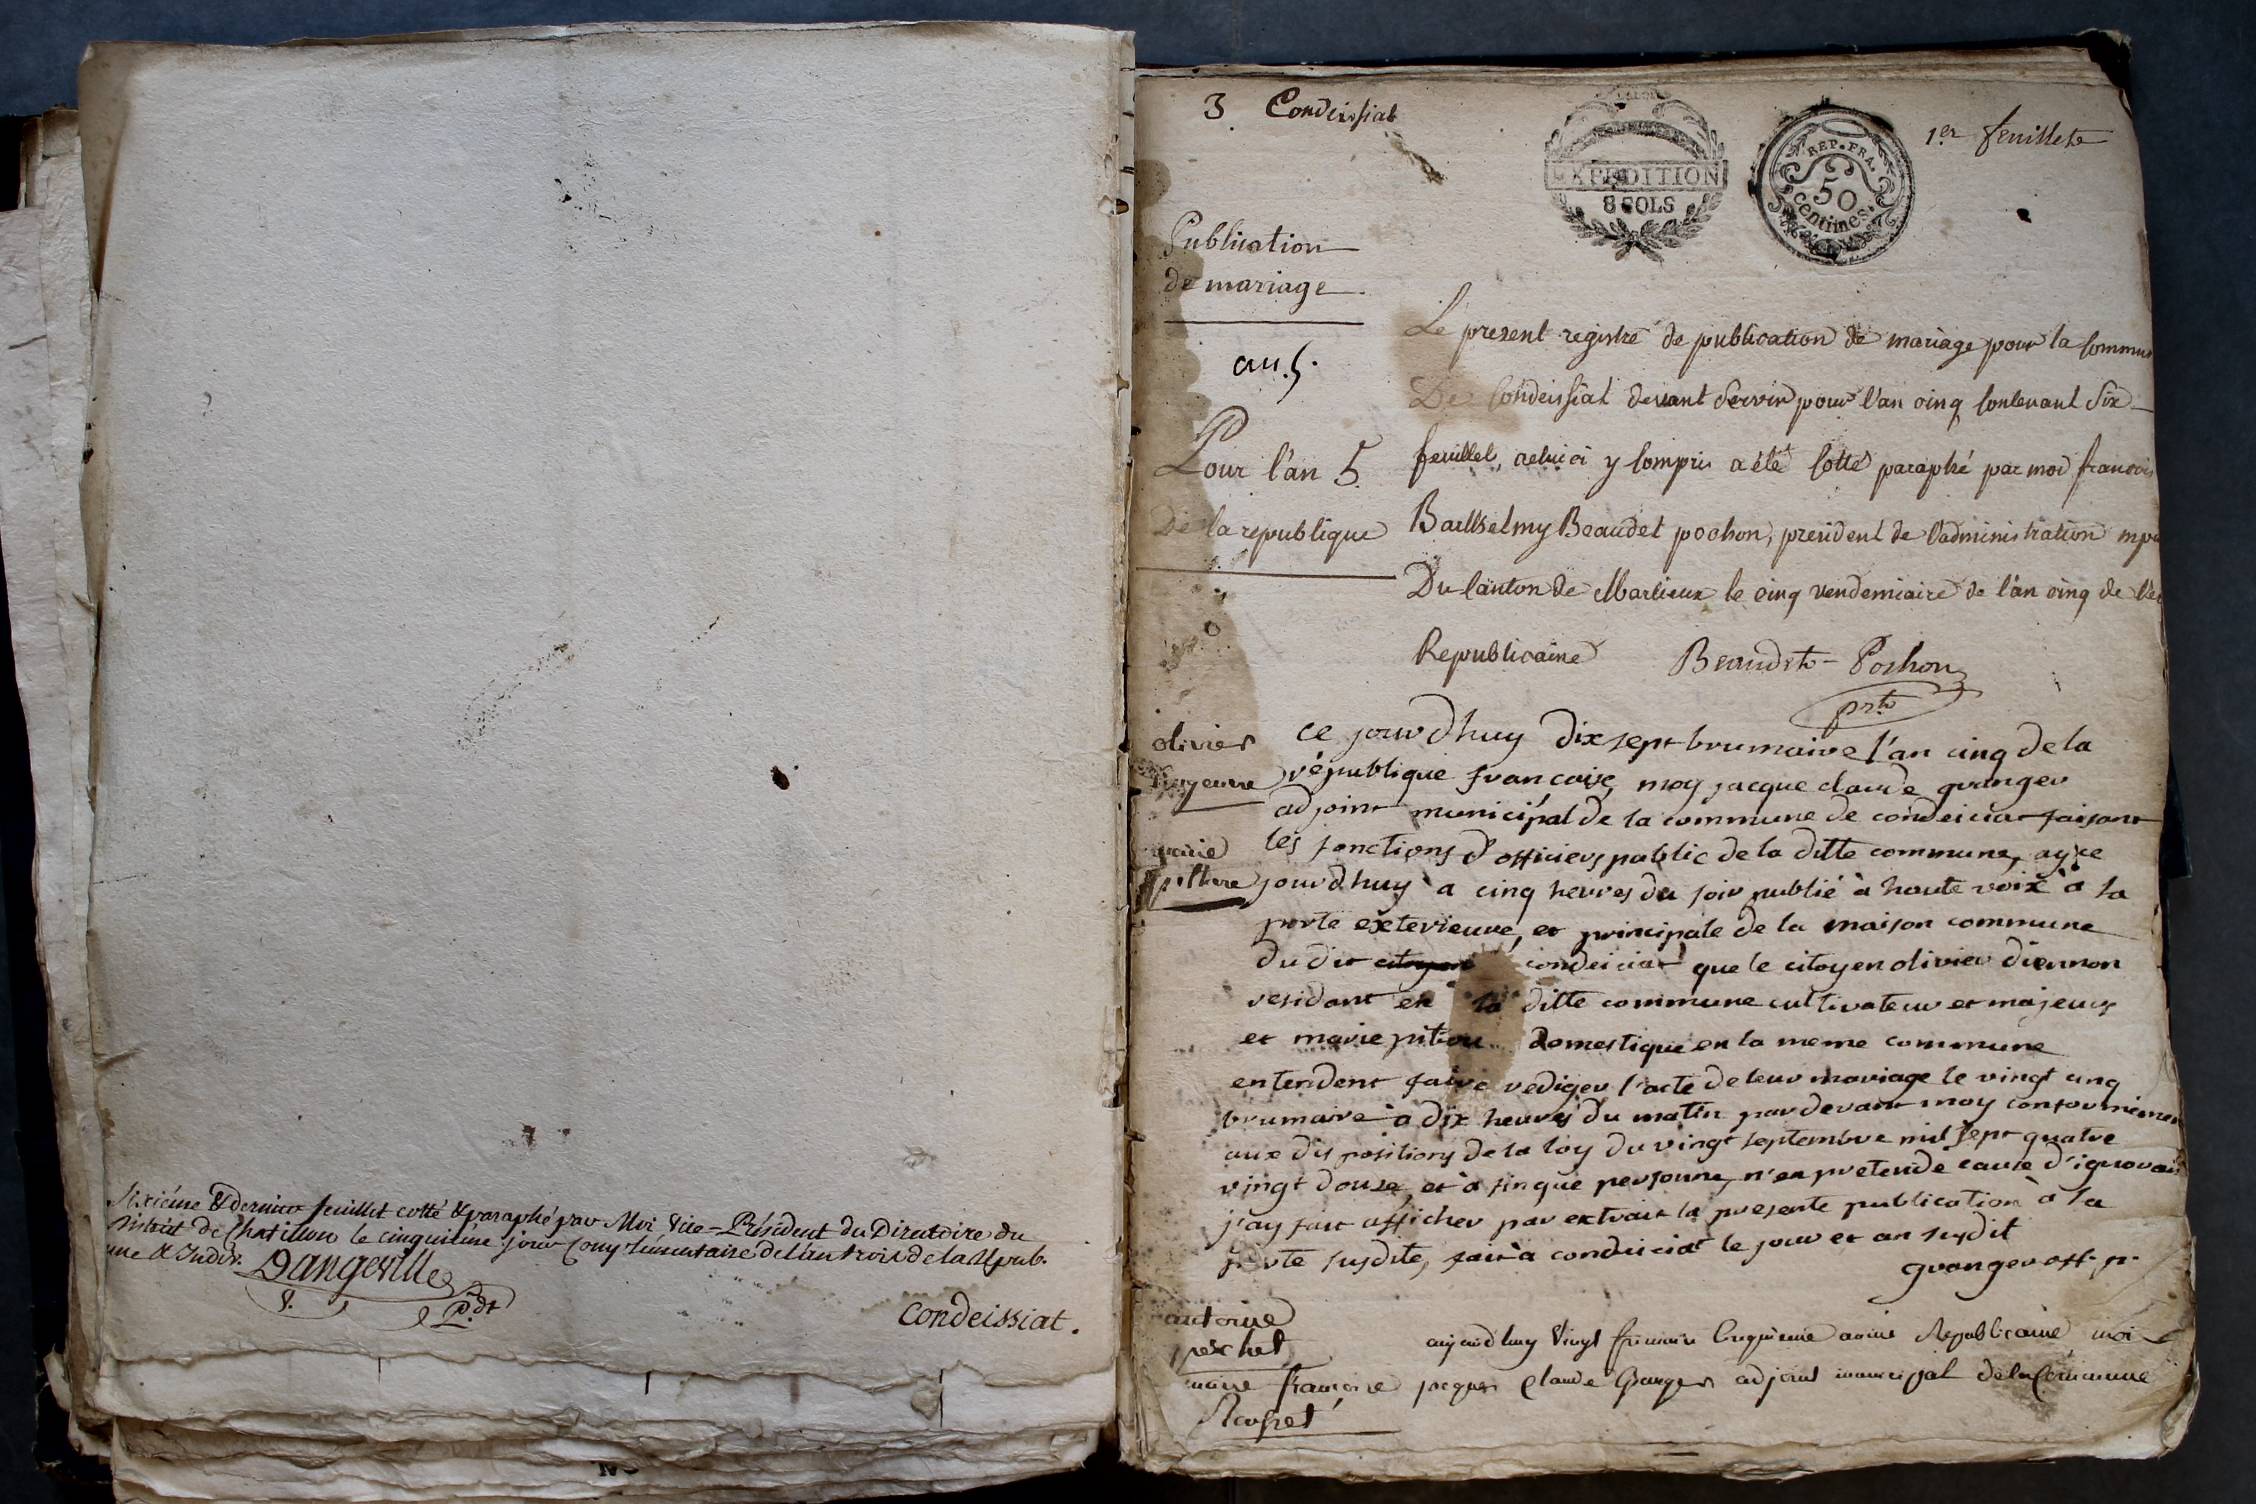 Sixiéme & dernier feuillet cotté & paraphé par Moi Vice-Président du Directoire du
District de Chatillon le cinquieme jour Complémentaire de l'an trois de la Repub.
une & Indiv. Dangeville
P.dt
Condeissiat.
3 Condeissiat
EXPEDITION
8 SOLS
REP. FRA.
50
centimes.
1er feuillet
Publication
de mariage
an 5.
Pour l'an 5
De la republique
Le present registre de publication de mariage pour la Commu
De Condeissiat devant Servir pour l'an cinq Contenant Six
feuillet, celui ci y Compris a été Cotté paraphé par moi francois
Barthelmy Beaudet pochon, president de l'administration mpa
Du Canton de Marlieux le cinq vendemiaire de l'an cinq de l'er
Republicaine Beaudet-Pochon
prt
olivier
marie
ce jourdhuy dix sept brumaire l'an cinq de la
république francaise, moy jacque claude granger
adjoint municipal de la commune de condeiciat faisant
les fonctions d'officiers public de la ditte commune, ay ce
jourdhuy à cinq heures du soir publié à haute voix à la
porte exterieure, et principale de la maison commune
du dit citoyen condeiciat que le citoyen olivier diennon
residant en la ditte commune cultivateur et majeur
et marie pitiou domestique en la meme commune
entendent faire rediger l'acte de leur mariage le vingt cinq
brumaire à dix heures du matin pardevant moy conformemen
aux dis positions de la loy du vingt septembre mil sept quatre
vingt douze, et à fin que personne n'en pretende cause d'ignoran
j'ay fait afficher par extrait la presente publication à la
porte susdite, fait à condeiciat le jour et an susdit
granger off. p.
antoine
pechet
marie françoise
aujourdhuy Vingt frimaire Cinquieme année Republicaine moi
jacques Claude Granger adjoint municipal de la Commune